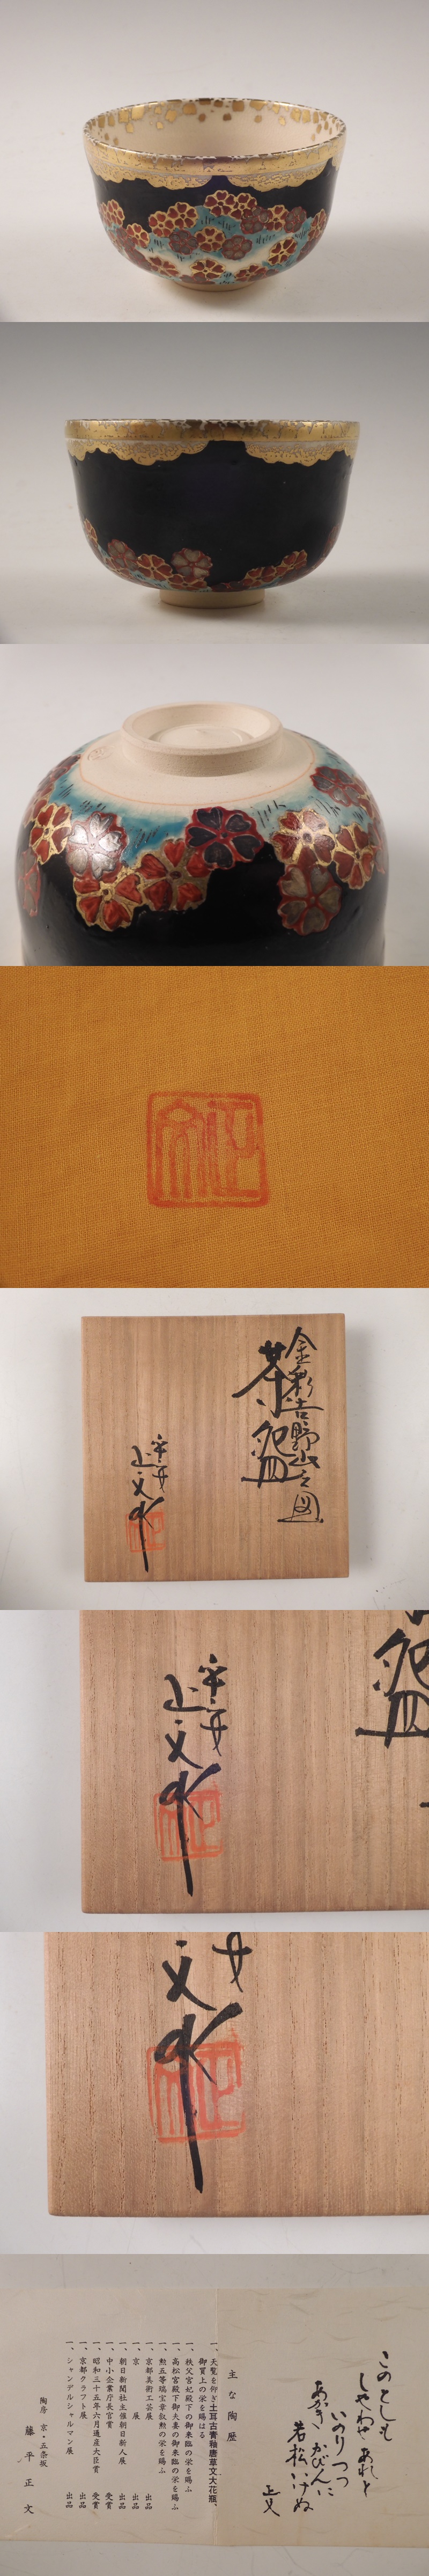 正文
金彩吉野山之図
茶盌
平安
正文
正文
平安
正文
正文
このとしも
しあわせあれと
いのりつつ
あかきかびんに
若松いけぬ
正文
主な陶歴
一、天覧を仰ぎ土耳古青釉唐草文大花瓶、
御買上の栄を賜はる
一、秩父宮妃殿下の御来臨の栄を賜ふ
一、高松宮殿下御夫妻の御来臨の栄を賜ふ
一、勲五等瑞宝章叙勲の栄を賜ふ
一、京都美術工芸展 出品
一、京展 出品
一、朝日新聞社主催朝日新人展 出品
一、中小企業庁長官賞 受賞
一、昭和三十五年六月通産大臣賞 受賞
一、京都クラフト展 出品
一、シャンデルシャルマン展 出品
陶房 京・五条坂
藤平正文